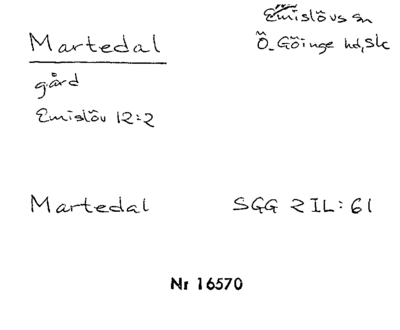 Emislövs sn
Martedal
Ö. Göinge hd, Sk
gård
Emislöv 12:2
Martedal SGG 2 IL: 61
Nr 16570